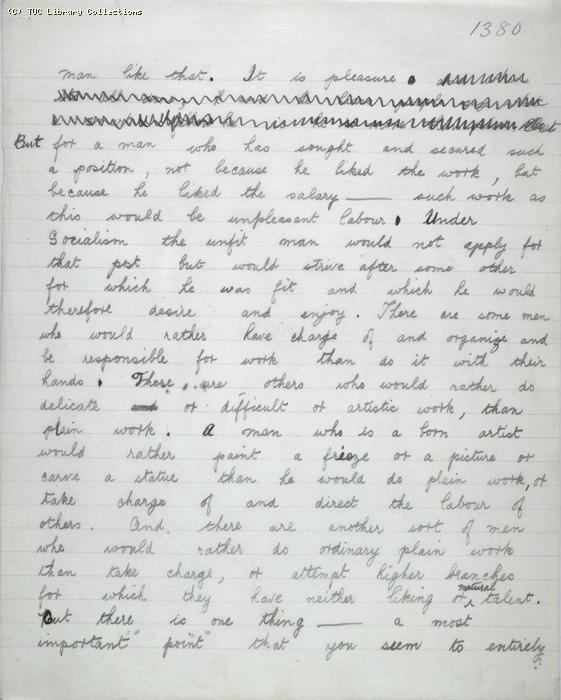 (C) TUC Library Collections
1380
man like that. It is pleasure.
But for a man who has sought and secured such
a position, not because he liked the work, but
because he liked the salary —— such work as
this would be unpleasant labour. Under
Socialism the unfit man would not apply for
that post but would strive after some other
for which he was fit and which he would
therefore desire and enjoy. There are some men
who would rather have charge of and organize and
be responsible for work than do it with their
hands. There are others who would rather do
delicate or difficult or artistic work, than
plain work. A man who is a born artist
would rather paint a frieze or a picture or
carve a statue than he would do plain work, or
take charge of and direct the labour of
others. And there are another sort of men
who would rather do ordinary plain work
than take charge, or attempt higher branches
for which they have neither liking or natural talent.
But there is one thing —— a most
important "point" that you seem to entirely